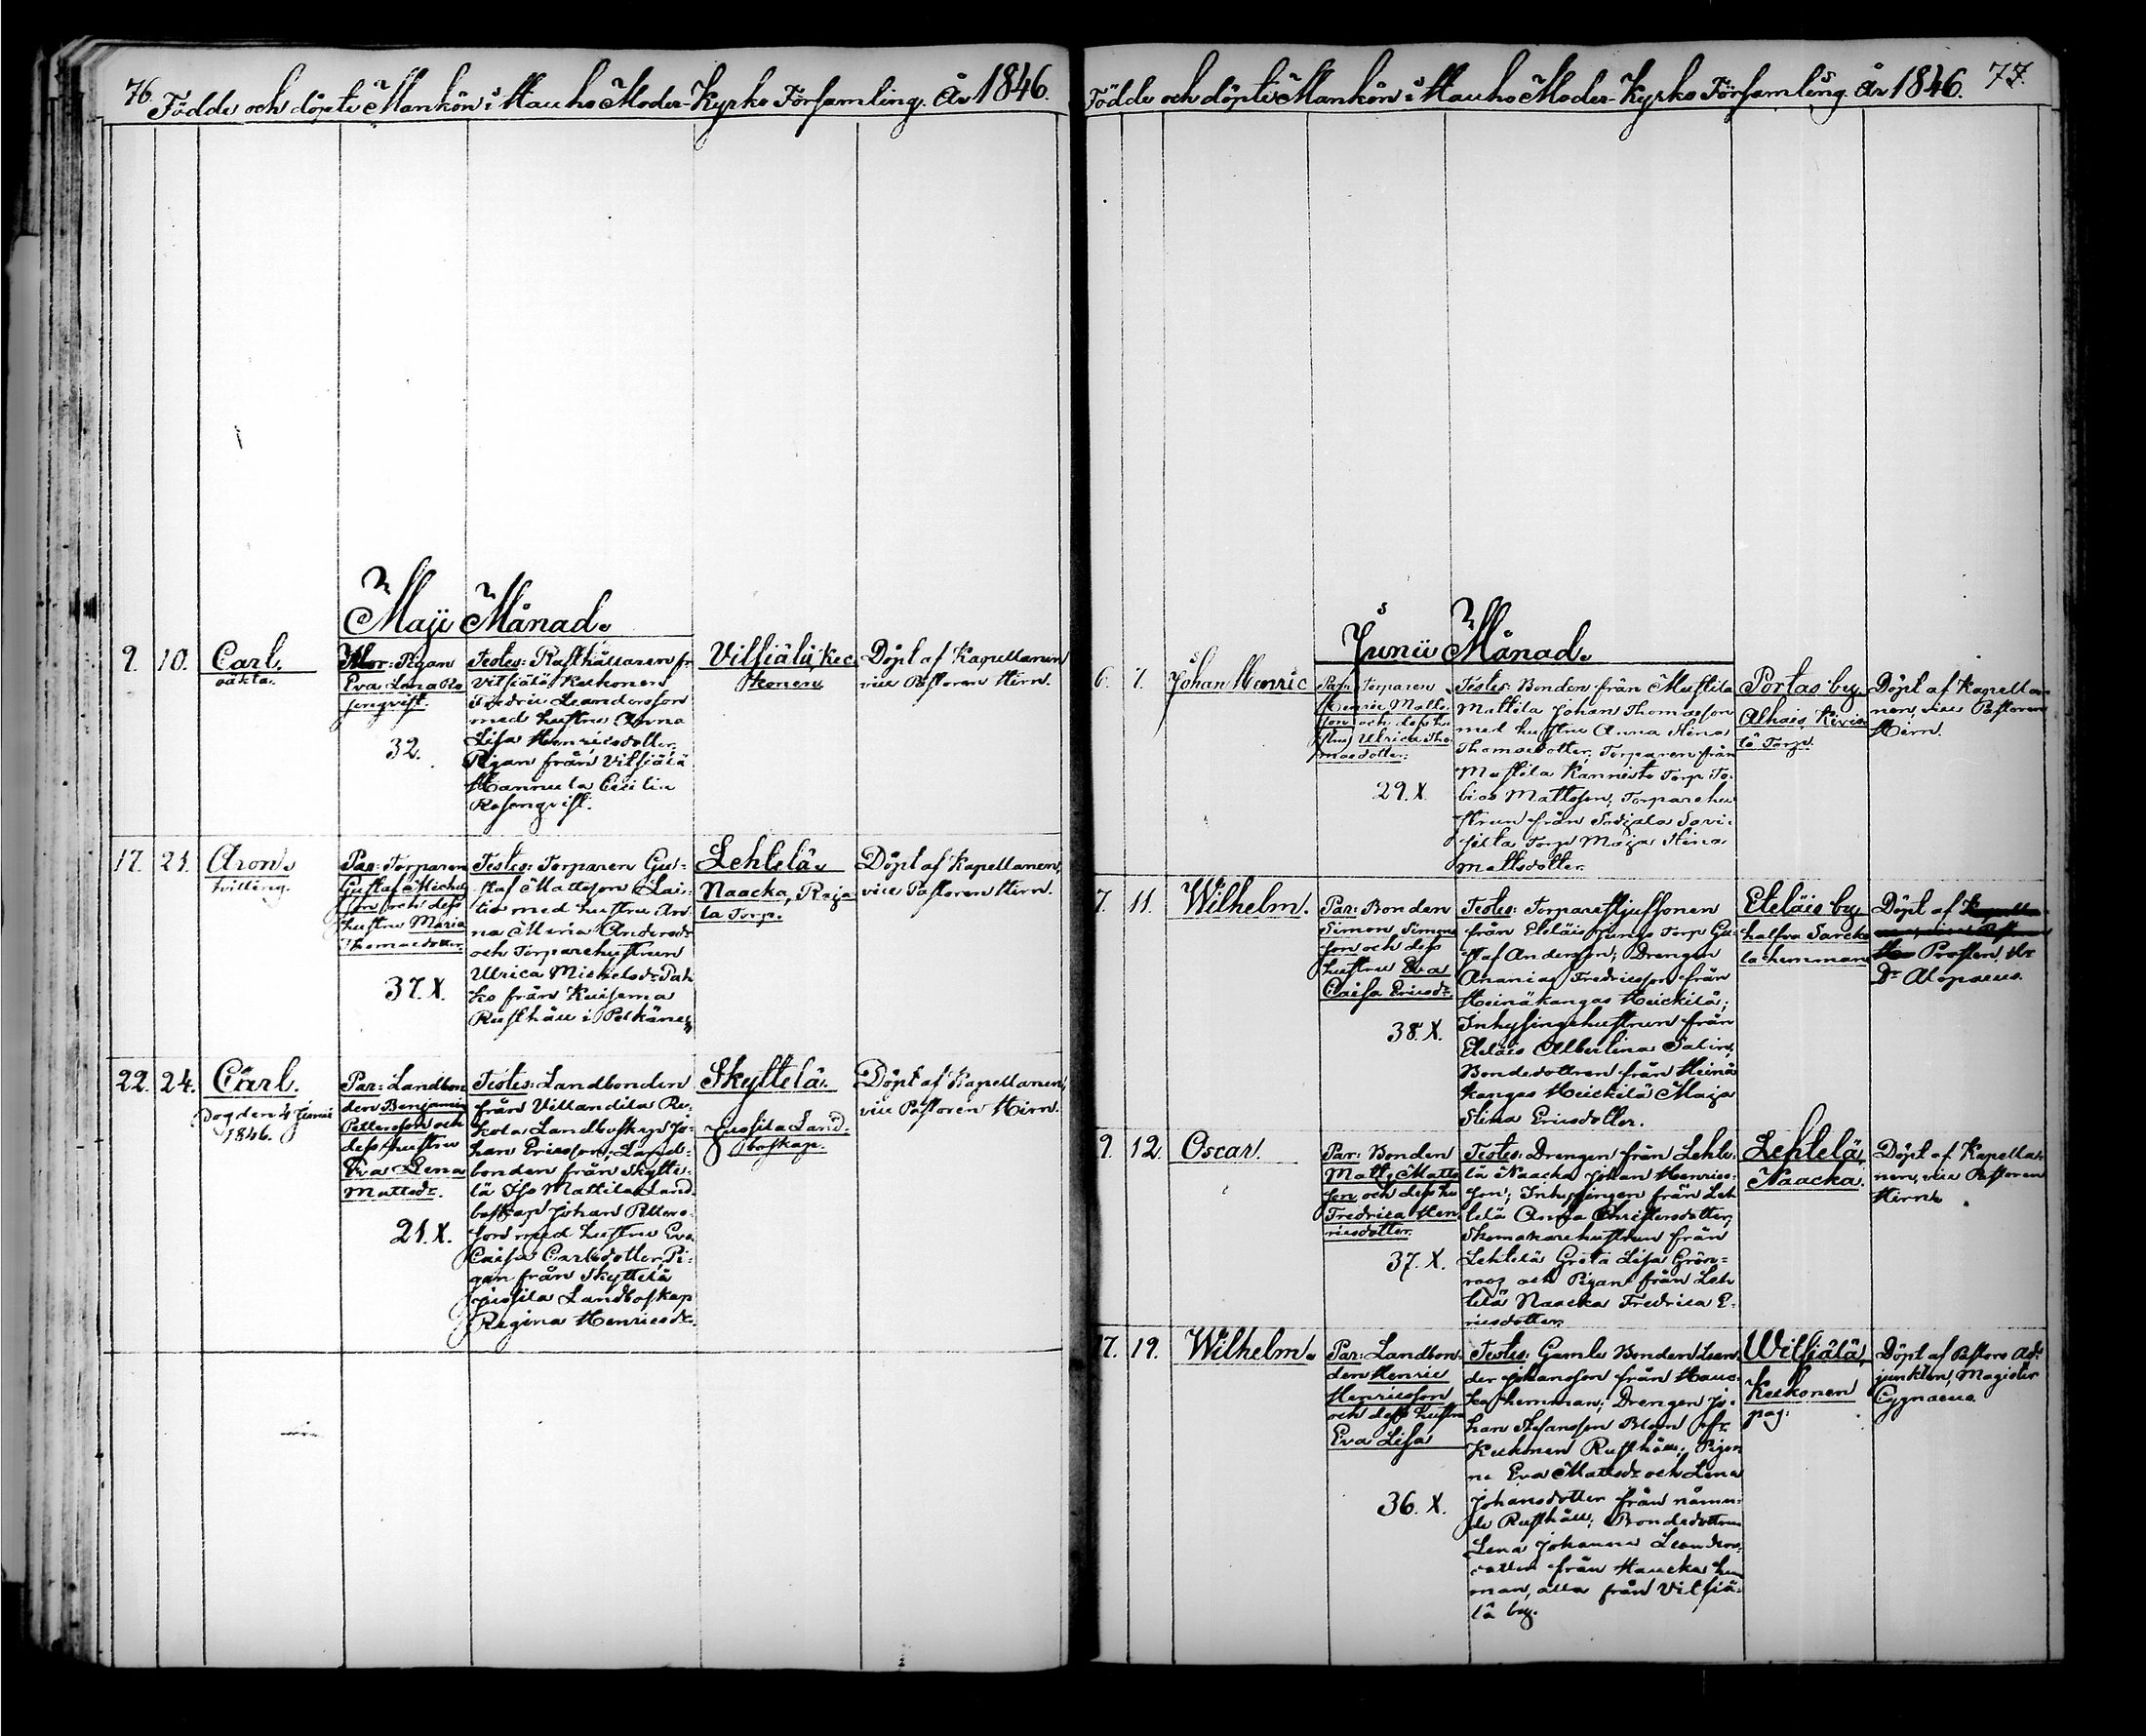 76. Födde och döpte Mankön i Hauho Moder-Kyrko Församling. År 1846.
Maji Månad.
9. 10. Carl.
oäkta.
Mor: Pigan
Eva Lena Ro
senqvist.
32.
Testes: Rusthållaren fr.
Vitsiälä Keckonen
Fredric Leandersson
med hustru Anna
Lisa Henricsdotter,
Pigan från Vitsiälä
Hannula Cecilia
Rosenqvist.
Vitsiälä Kec
konen
Döpt af Kapellanen
vice Pastoren Hirn.
17. 21. Aron.
tvilling.
Par: Torparen
Gustaf Michels
son och dess
hustru Maria
Thomaedotter
37. X.
Testes: Torparen Gu-
staf Mattsson Lai-
tis med hustru An-
na Maria Andersdr
och Torparehustrun
Ulrica Michelsdr Pah
ko från Kuisema
Rusthåll i Pelkäne
Lehtelä
Naacka, Raja
la Torp.
Döpt af Kapellanen,
vice Pastoren Hirn.
22. 24. Carl.
Dog den 4 Junii
1846.
Par: Landbon
den Benjamin
Pettersson och
dess hustru
Eva Lena
Mattsdr.
21. X.
Testes: Landbonden
från Villandila Re-
kola Landboskap Jo-
han Ericsson; Land-
bonden från Skytte-
lä Iso Mattila Land-
boskap Johan Petters-
son med hustru Eva
Caisa Carlsdotter, Pi-
gan från Skyttelä
Jussila Landboskap
Regina Henricsdr.
Skyttelä.
Jussila Land-
boskap.
Döpt af Kapellanen,
vice Pastoren Hirn.
Födde och döpte Mankön i Hauho Moder-Kyrko Församling. År 1846. 77.
Junii Månad.
6. 7. Johan Henric
Par: Torparen
Henric Matts
son och dess hu
stru Ulrica Tho
maedotter.
29. X.
Testes: Bonden från Mustila
Mattila Johan Thomasson
med hustru Anna Stina
Thomaedotter, Torparen från
Mustila Kannisto Torp To-
bias Mattsson, Torparehu
strun från Sotjala Savi-
silta Torp Maja Stina
Mattsdotter.
Portas by
Alhais, Kivis
tö Torp.
Döpt af Kapella-
nen, vice Pastoren
Hirn.
7. 11. Wilhelm.
Par: Bonden
Simon Simons
son och dess
hustru Eva
Caisa Ericsdr.
38. X.
Testes: Torparestjufsonen
från Eteläis Junge Torp Gu-
staf Andersson; Drengen
Ananias Fredricsson från
Heinäkangas Heickilä;
Inhysingehustrun från
Eteläis Albertina Salin,
Bondedottren från Heinä
kangas Heickilä Maja
Stina Ericsdotter.
Eteläis by
halfva Sarcko
la hemman
Döpt af
Prosten, Hr
Dr Alopaeus.
9. 12. Oscar.
Par: Bonden
Matts Matts
son och dess hu
Fredrica Hen
ricsdotter.
37. X.
Testes: Drengen från Lehte-
lä Naacka Johan Henrics-
son; Inhysingen från Leh
telä Anna Christersdotter,
Skomakarehustrun från
Lehtelä Greta Lisa Grön-
roos och Pigan från Leh
telä Naacka Fredrica E-
ricsdotter.
Lehtelä,
Naacka.
Döpt af Kapella-
nen, vice Pastoren
Hirn.
17. 19. Wilhelm.
Par: Landbon-
den Henric
Henricsson
och dess hustru
Eva Lisa
36. X.
Testes: Gamle Bonden Lean-
der Johansson från Hauc-
ka hemman; Drengen Jo-
han Stefansson Blom ifr.
Keckonen Rusthåll; Pigor
na Eva Mattsdr och Lena
Johansdotter från nämn-
de Rusthåll; Bondedottren
Lena Johanna Leanders-
dotter från Haucka hem
man, alla från Vitsiä-
lä by.
Witsiälä,
Keckonen
pag.
Döpt af Pastors Ad-
junkten, Magister
Cygnaeus.